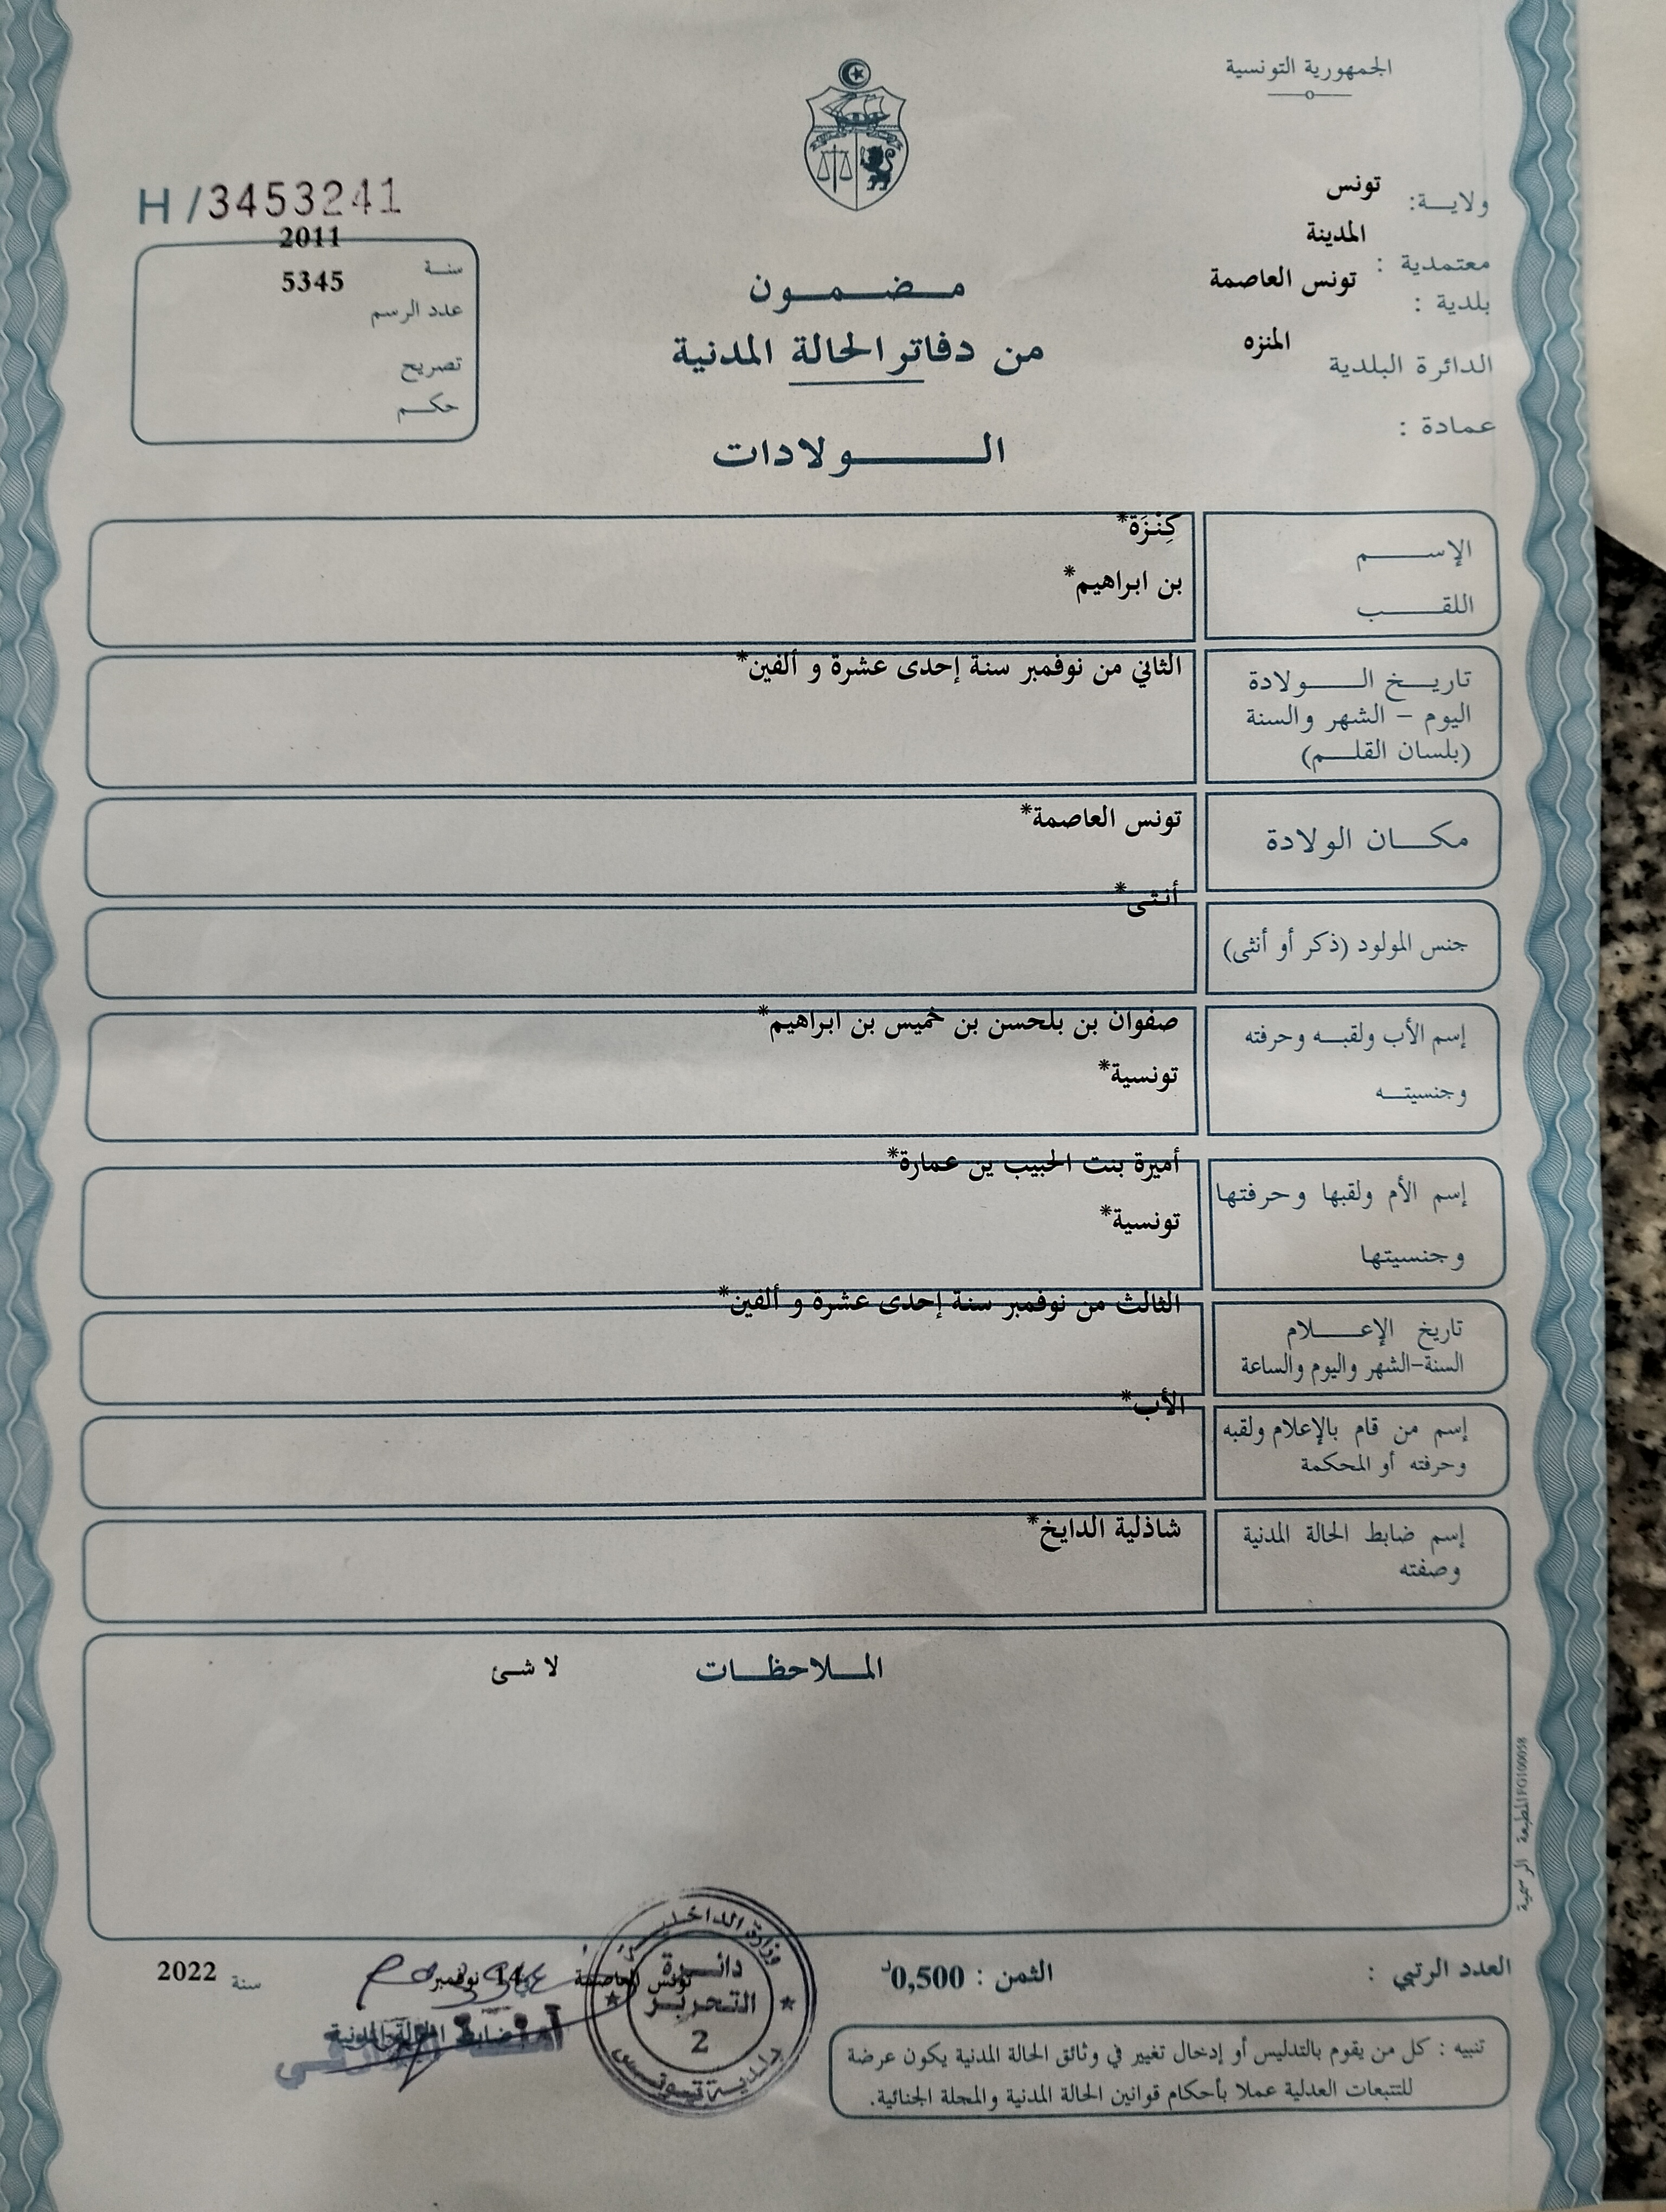 الجمهورية التونسية
ولايـــة: تونس
معتمدية : المدينة
بلدية : تونس العاصمة
الدائرة البلدية المنزه
عمادة :
H/3453241
سنة 2011
عدد الرسم 5345
تصريح
حكم
مضمون
من دفاتر الحالة المدنية
الولادات
الإسم كِنْزَة*
اللقب بن ابراهيم*
تاريخ الولادة الثاني من نوفمبر سنة إحدى عشرة و ألفين*
اليوم - الشهر والسنة
(بلسان القلم)
مكان الولادة تونس العاصمة*
جنس المولود (ذكر أو أنثى) أنثى*
إسم الأب ولقبه وحرفته صفوان بن بلحسن بن خميس بن ابراهيم*
وجنسيته تونسية*
إسم الأم ولقبها وحرفتها أميرة بنت الحبيب بن عمارة*
وجنسيتها تونسية*
تاريخ الإعلام الثالث من نوفمبر سنة إحدى عشرة و ألفين*
السنة-الشهر واليوم والساعة
إسم من قام بالإعلام ولقبه الأب*
وحرفته أو المحكمة
إسم ضابط الحالة المدنية شاذلية الدايخ*
وصفته
الملاحظات لا شئ
المطبعة الرسمية FG100058
العدد الرتبي :
الثمن : 0,500د
تونس العاصمة 14 نوفمبر سنة 2022
ضابط الحالة المدنية
وزارة الداخلية
دائرة
التحرير
2
بلدية تونس
تنبيه : كل من يقوم بالتدليس أو إدخال تغيير في وثائق الحالة المدنية يكون عرضة
للتتبعات العدلية عملا بأحكام قوانين الحالة المدنية والمجلة الجنائية.